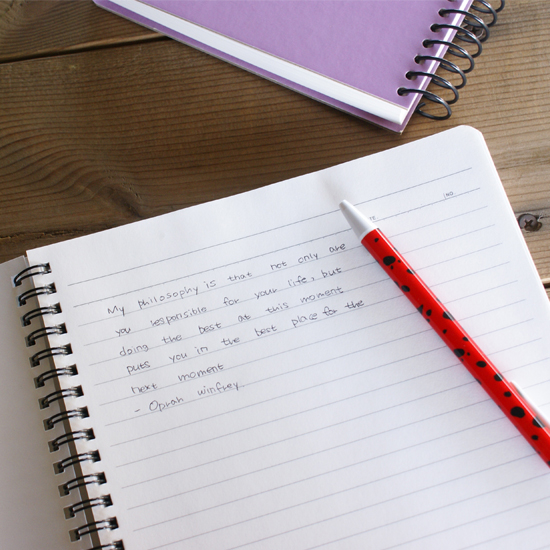 My philosophy is that not only are
you responsible for your life, but
doing the best at this moment
puts you in the best place for the
next moment
- Oprah winfrey